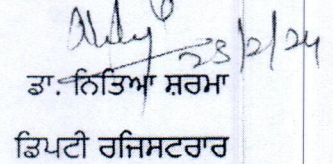 23/2/24
ਡਾ. ਨਿਤਿਆ ਸ਼ਰਮਾ
ਡਿਪਟੀ ਰਜਿਸਟਰਾਰ